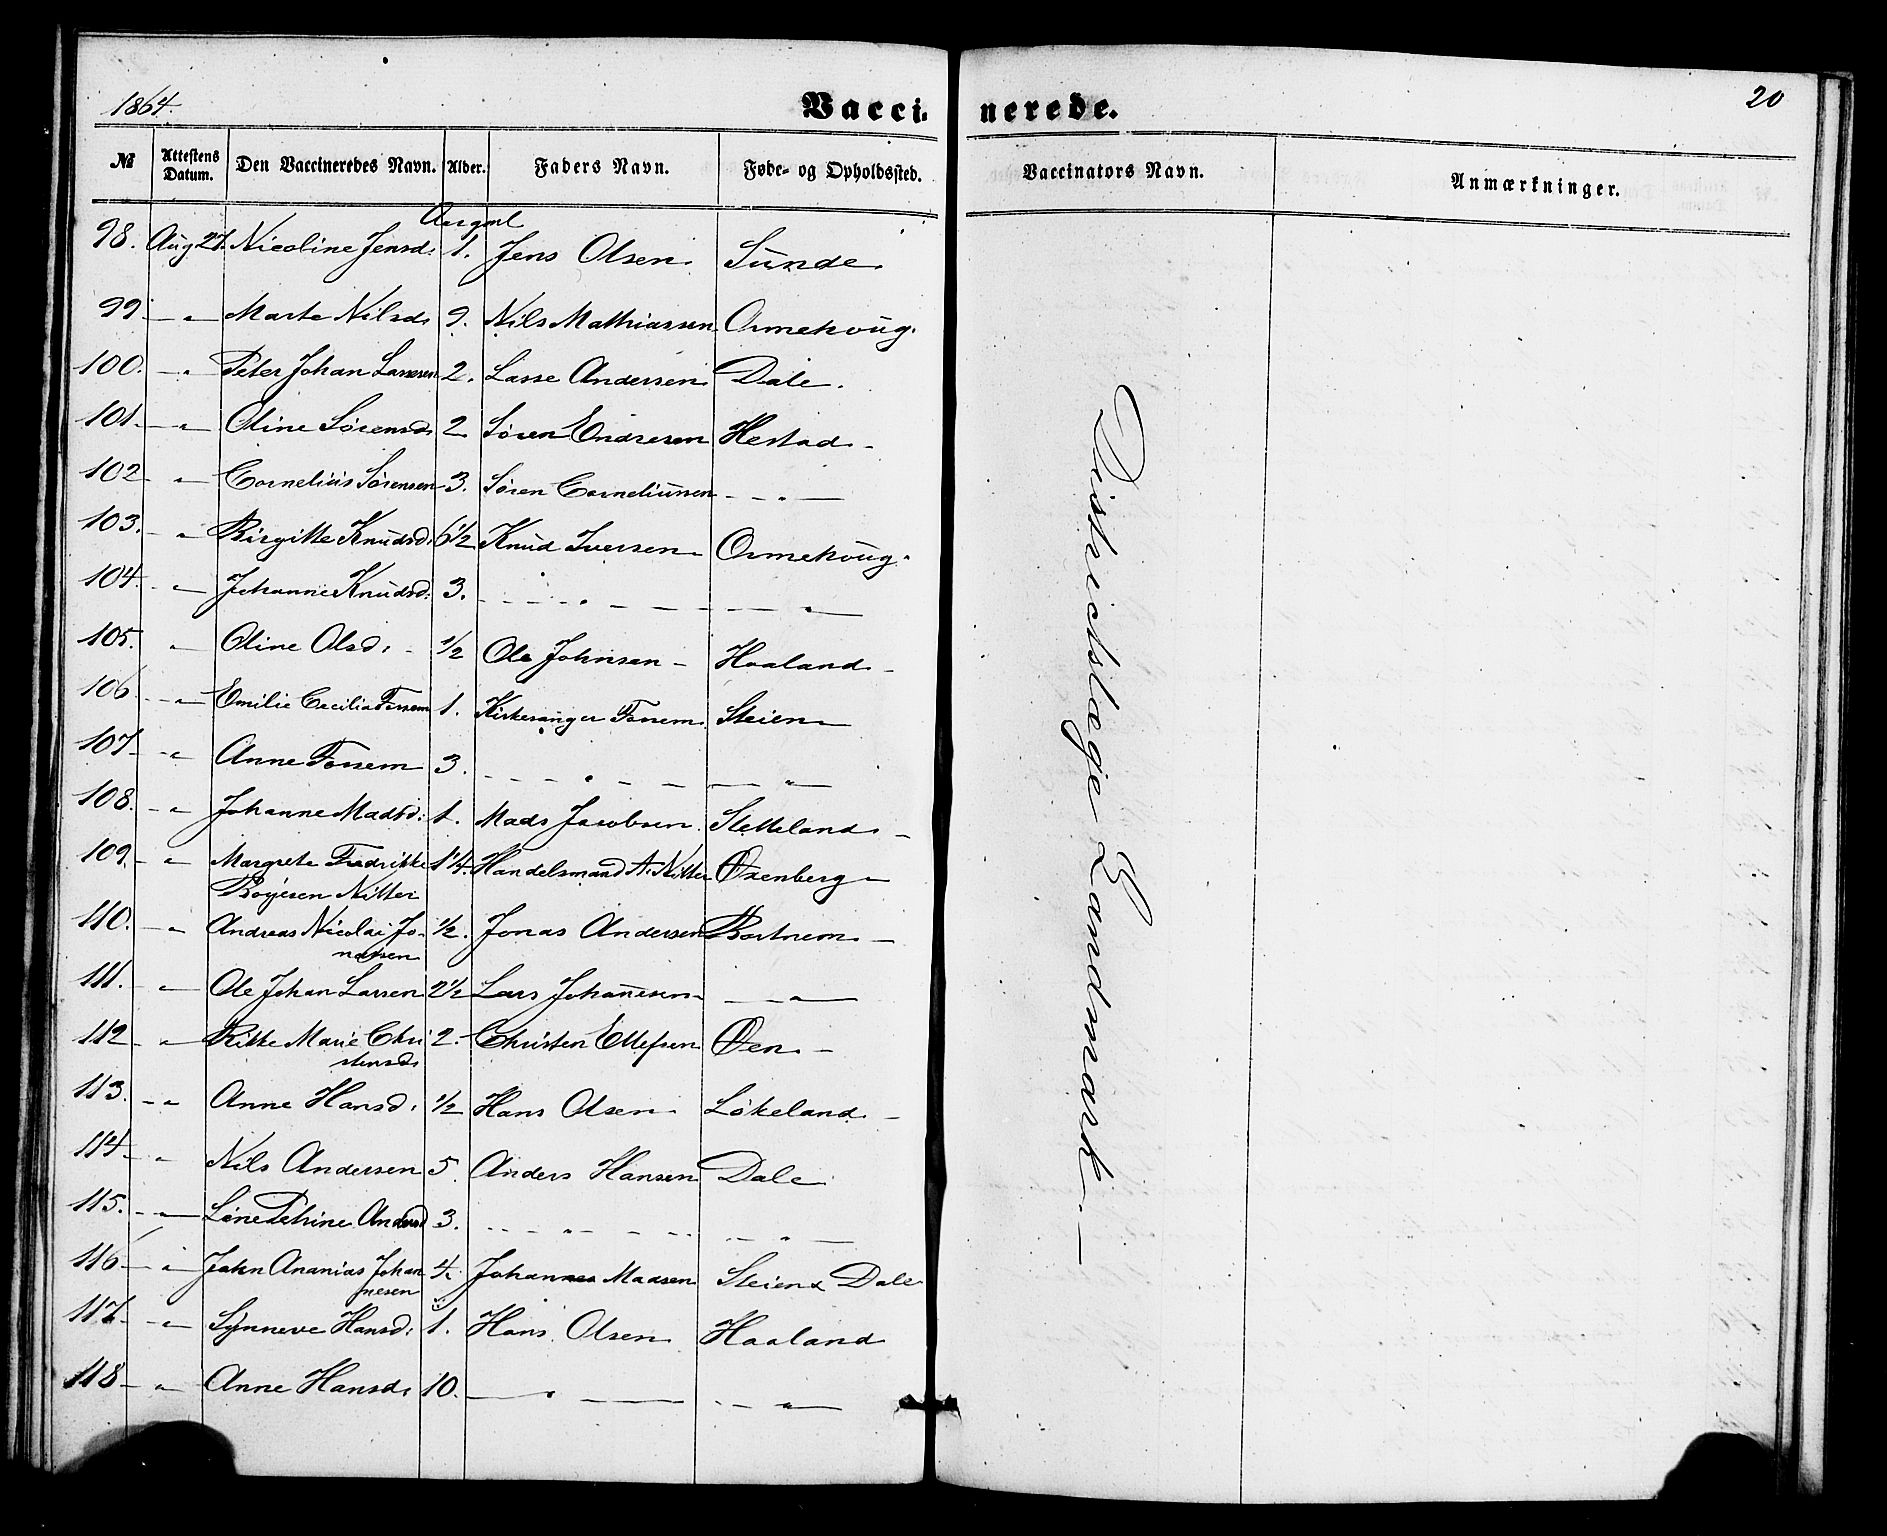 1864.
Vaccinerede.
20
№ Attestens Datum. Den Vaccineredes Navn. Alder. Faders Navn. Føde- og Opholdssted. Vaccinators Navn. Anmærkninger.
98. Aug 27. Nicoline Jensd: 1. Jens Olsen Sunde
99. " Marte Nilsd. 9. Nils Mathiassen Ormehoug.
100. " Peter Johan Lassesen 2. Lasse Andersen Dale.
101. " Oline Sørensd. 2. Søren Endresen Hestad
102 " Cornelius Sørensen 3. Søren Corneliussen "
103. " Birgitte Knudsd. 6 1/2 Knud Iversen Ormehoug.
104. " Johanne Knudsd. 3. " "
105. " Oline Olsd. 1/2 Ole Johnsen Haaland
106 " Emilie Cecilia Forsem 1. Kirkesanger Forsem. Steien
107 " Anne Forsem 3. " "
108. " Johanne Madsd: 1. Mads Jacobsen. Stetteland
109. " Margrete Fredrikke 1 1/4. Handelsmand A. Nitter Øxenberg
Boyesen Nitter
110. " Andreas Nicolai Jo- 1/2. Jonas Andersen Bortnem
nassen
111. " Ole Johan Larsen 2 1/2 Lars Johannesen "
112 " Ritte Marie Chri 2. Christen Ellefsen Øen
stensd.
113. " Anne Hansd. 1/2 Hans Olsen Løkeland
114 " Nils Andersen 5. Anders Hansen Dale
115. " Lene Petrine Andersd 3. " "
116 " John Ananias Johan Johannes Madsen Steien Dale
nesen
117. " Synneve Hansd. 1. Hans Olsen Haaland
118 " Anne Hansd. 10. " "
Districtslæge Landmark.